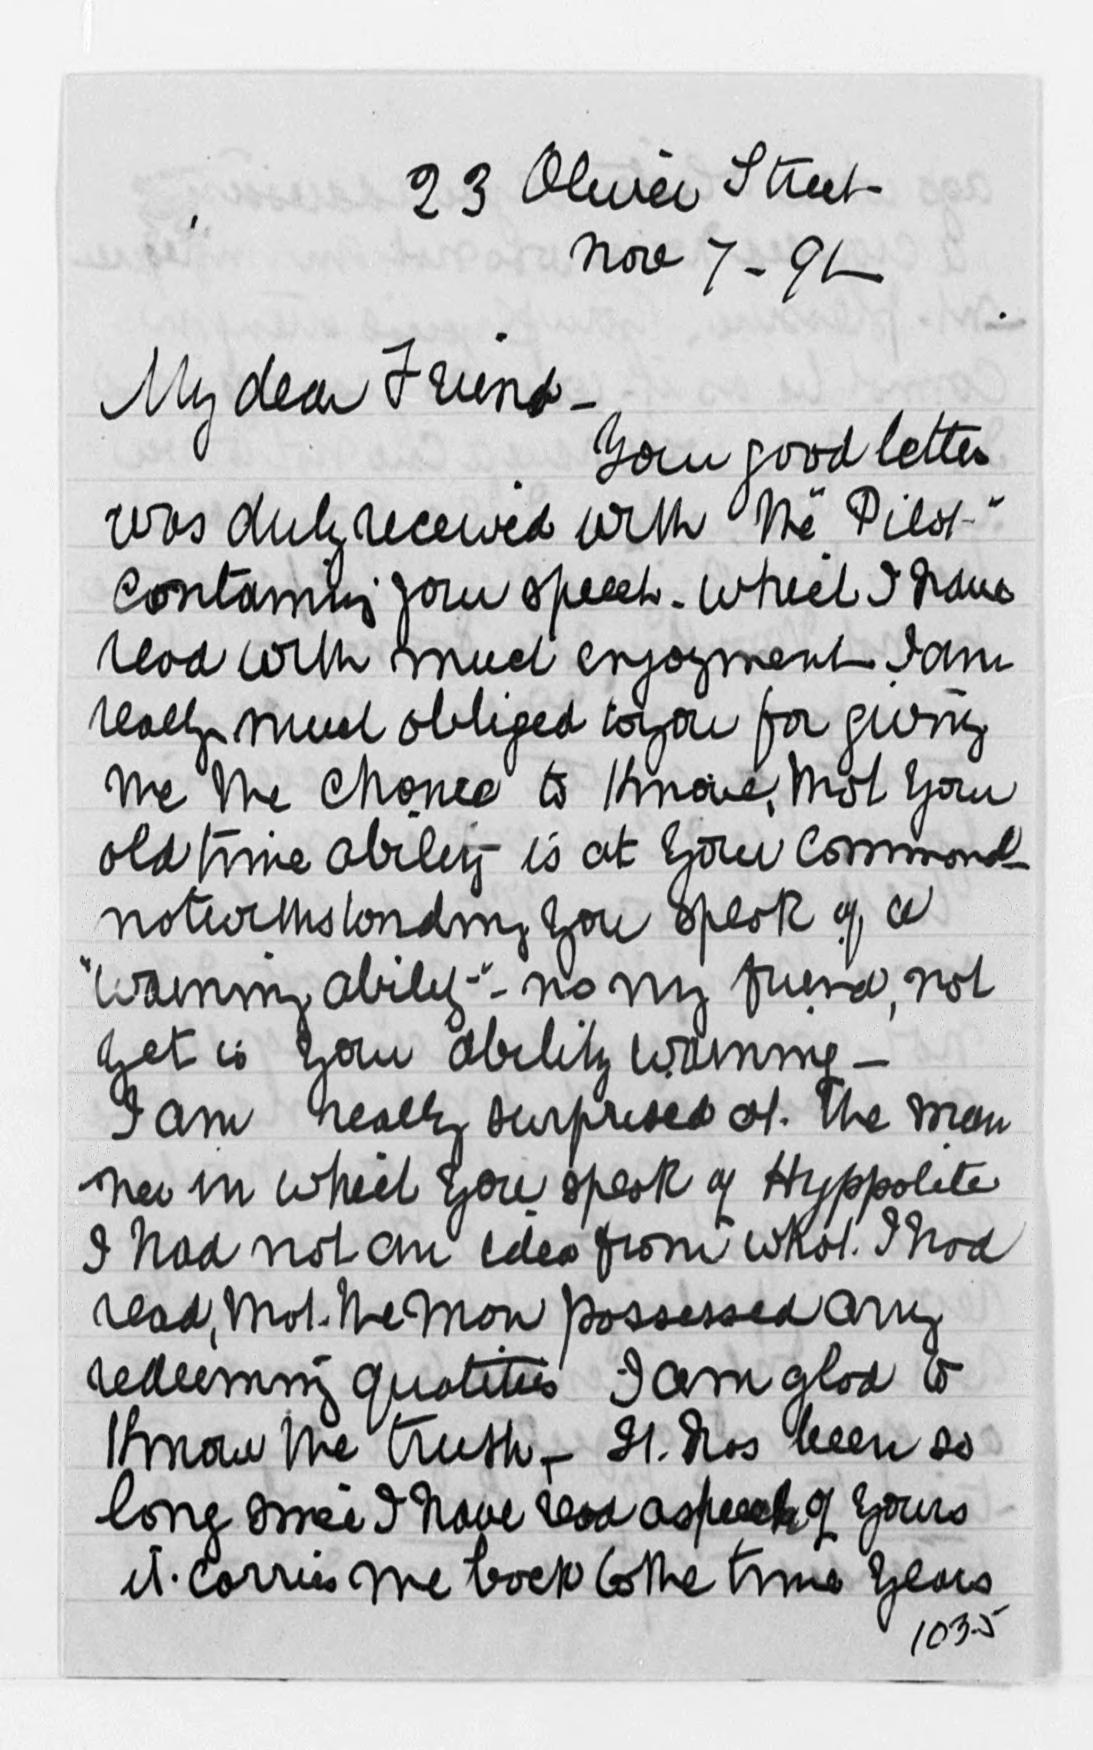 23 Olivier Street
Nov 7 - 92
My dear Friend -
Your good letter
was duly received with the "Pilot"
containing your speech - which I have
read with much enjoyment I am
really much obliged to you for giving
me the chance to know, that your
old time ability is at your command
notwithstanding you speak of a
"waining ability" - no my friend, not
yet is your ability waining -
I am really surprised at the man
ner in which you speak of Hyppolite
I had not an idea from what I had
read, that the man possessed any
redeeming qualities I am glad to
know the truth, - It has been so
long since I have read a speech of yours
it carries me back to the time years
1035